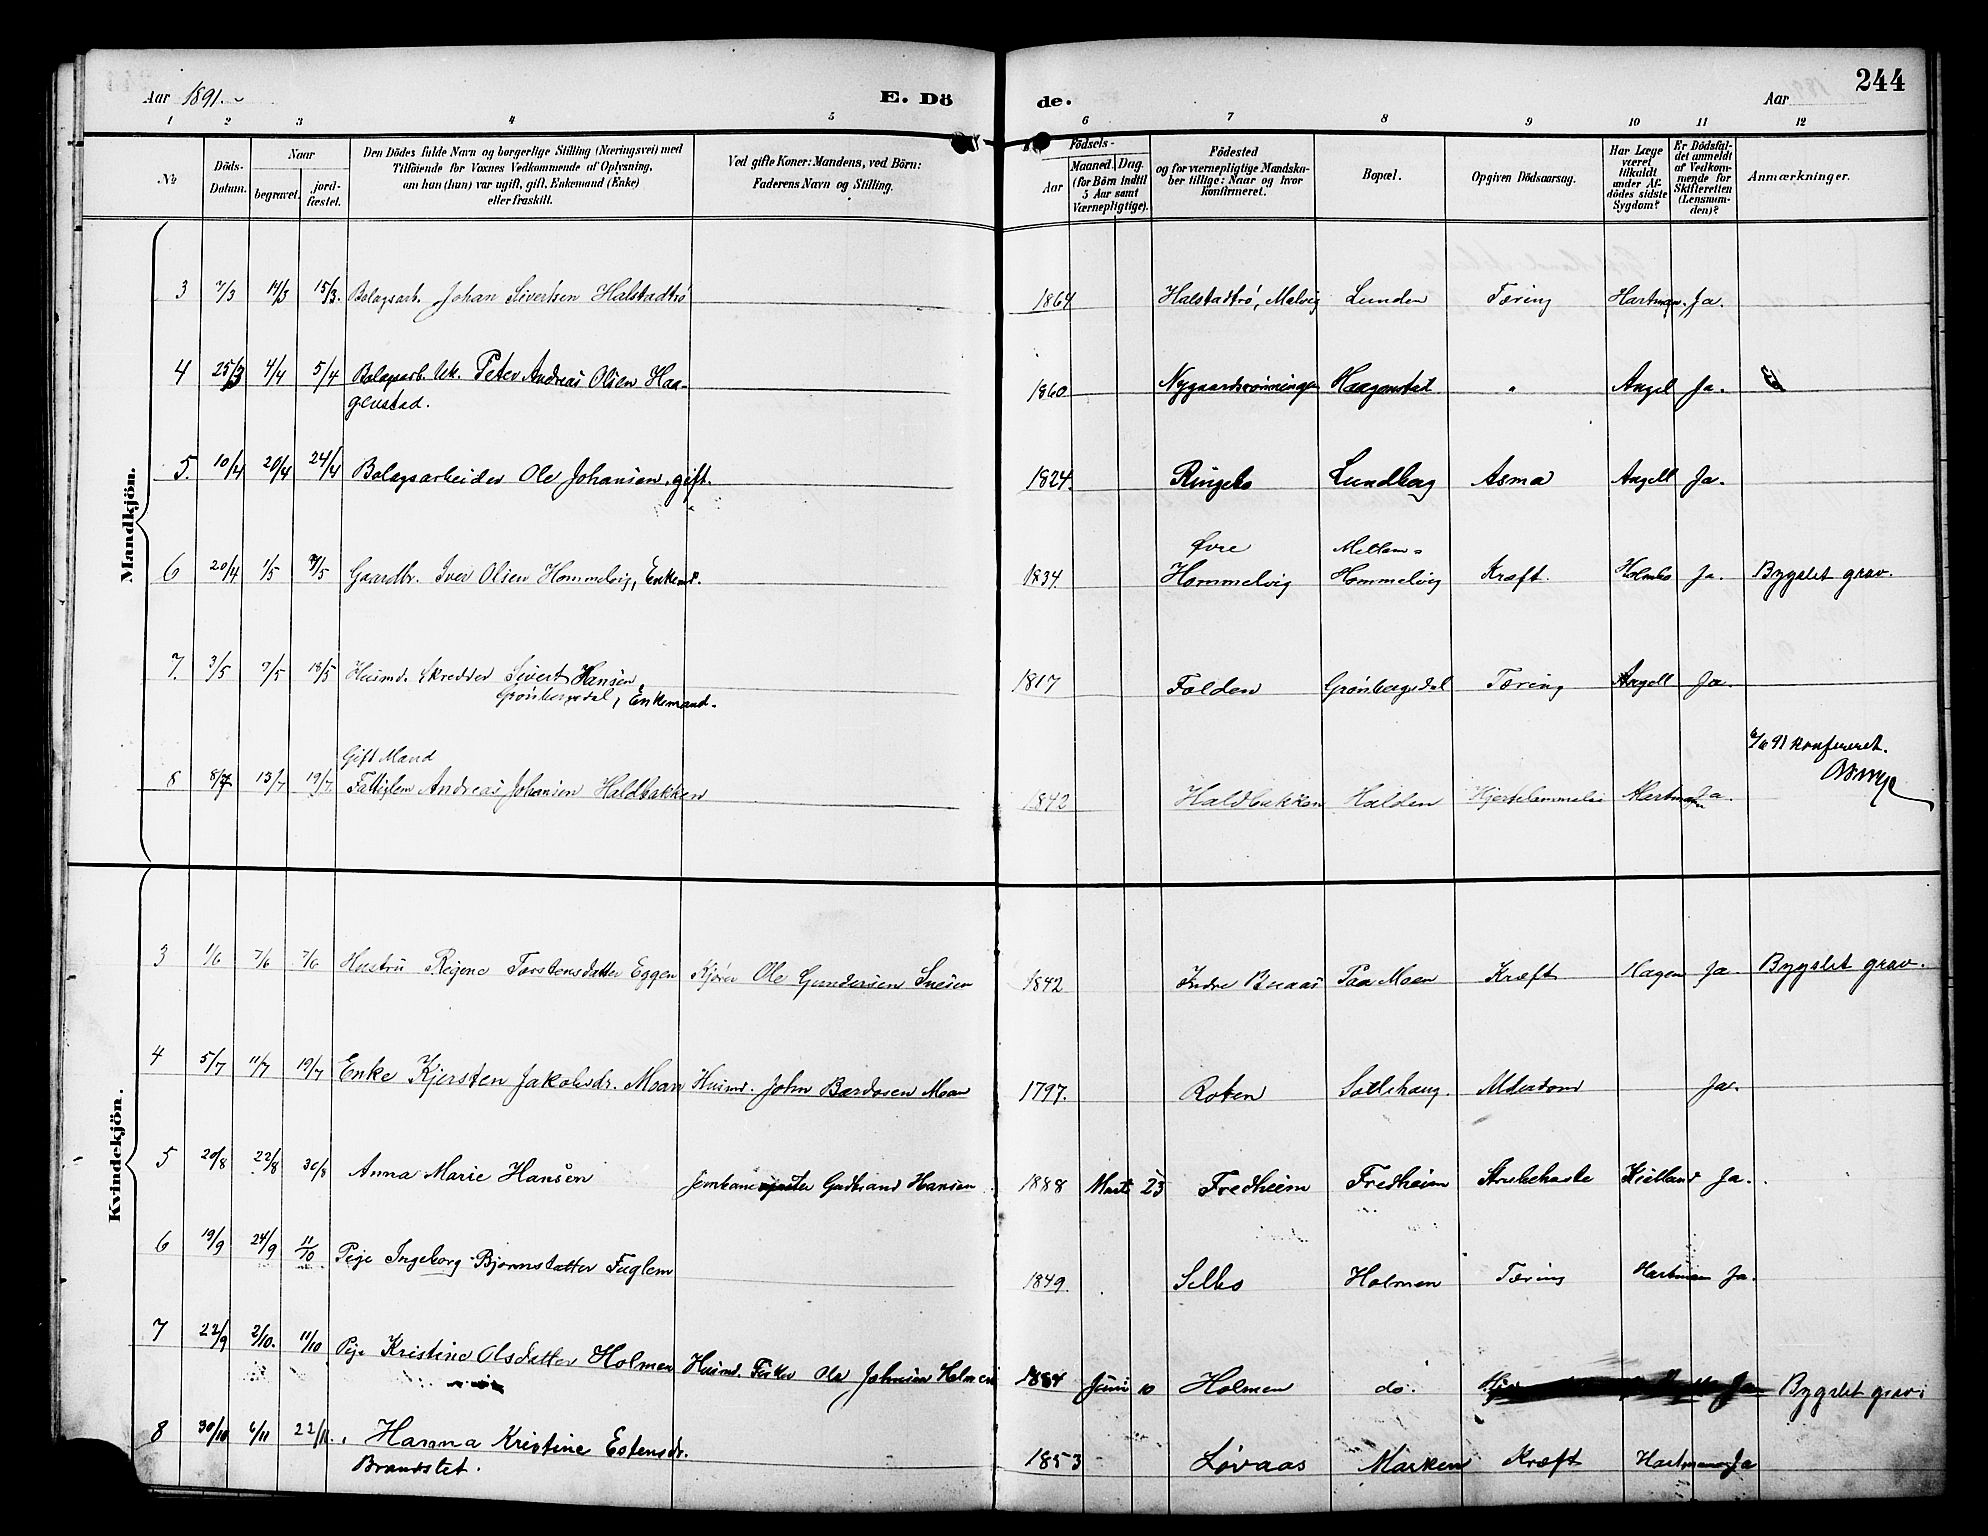 Aar 1891.
E. Dö
de.
Aar
244
1 2 3 4 5 6 7 8 9 10 11 12
№
Döds-
Datum.
Naar
begravet.
jord-
fæstet.
Den Dödes fulde Navn og borgerlige Stilling (Næringsvei) med
Tilföiende for Voxnes Vedkommende af Oplysning,
om han (hun) var ugift, gift, Enkemand (Enke)
eller fraskilt.
Ved gifte Koner: Mandens, ved Börn:
Faderens Navn og Stilling.
Födsels-
Aar
Maaned. Dag.
(for Börn indtil
5 Aar samt
Værnepligtige).
Födested
og for værnepligtige Mandska-
ber tillige: Naar og hvor
konfirmeret.
Bopæl.
Opgiven Dödsaarsag.
Har Læge
været
tilkaldt
under Af-
dödes sidste
Sygdom?
Er Dödsfal-
det anmeldt
af Vedkom-
mende for
Skifteretten
(Lensman-
den)?
Anmærkninger.
Mandkjön.
3 7/3 14/3 15/3. Bolagsarb. Johan Sivertsen Halstadtrø 1864 Halstadtrø, Malvig Lunden Tæring Hartman, Ja.
4 25/3 4/4 5/4 Bolagsarb. Uk. Peter Andreas Olsen Haa-
genstad. 1860 Nygaardsrønningen Haagenstad " Angel Ja.
5. 10/4 20/4 24/4 Bolagsarbeider Ole Johansen, gift. 1824. Ringebo Lundberg Asma Angell Ja.
Øvre Mellem-
6 20/4 1/5 3/5 Gaardbr. Iver Olsen Hommelvig, Enkemd. 1834 Hommelvig Hommelvig Kræft. Holmbo Ja. Bygslet grav.
7. 3/5 7/5 18/5 Husmd. Skredder Sivert Hansen,
Grønbergsdal, Enkemand. 1817 Folden Grønbergsdal Tæring Angell Ja.
6/6 91 konfereret.
Gift Mand
8 8/7 13/7 19/7. Fattiglem Andreas Johansen Haldbakken 1842 Haldbakken Halden Hjertelammelse Hartmann Ja.
Kvindekjön.
3 1/6 7/6 7/6 Hustru Regine Torstensdatter Eggen Kjører Ole Gundersen 1842 Indre Buaas Paa Moen Kræft Hagen Ja Bygslet grav.
4 5/7 11/7 19/7 Enke Kjersten Jakobsdr. Moan Husmd. John Bardosen Moan 1797. Roten Sollihaug. Alderdom Ja.
5 20/8 22/8 30/8 Anna Marie Hansen Gudbrand Hansen 1888 Marts 23 Fredheim Fredheim Strubehoste Kielland Ja.
6 19/9 24/9 11/10 Pige Ingeborg Bjørnsdatter Fuglem 1849. Selbo Holmen Tæring Hartman Ja.
7 22/9 2/10. 11/10 Pige Kristine Olsdatter Holmen Husmd. Fisker Ole Johnsen Holmen 1884 Juni 10 Holmen do. Ja Bygslet grav.
8 30/10 6/11 22/11. Hanna Kristine Estensdr.
Brandslet. 1853 Løvaas Marken Kræft Hartmann Ja